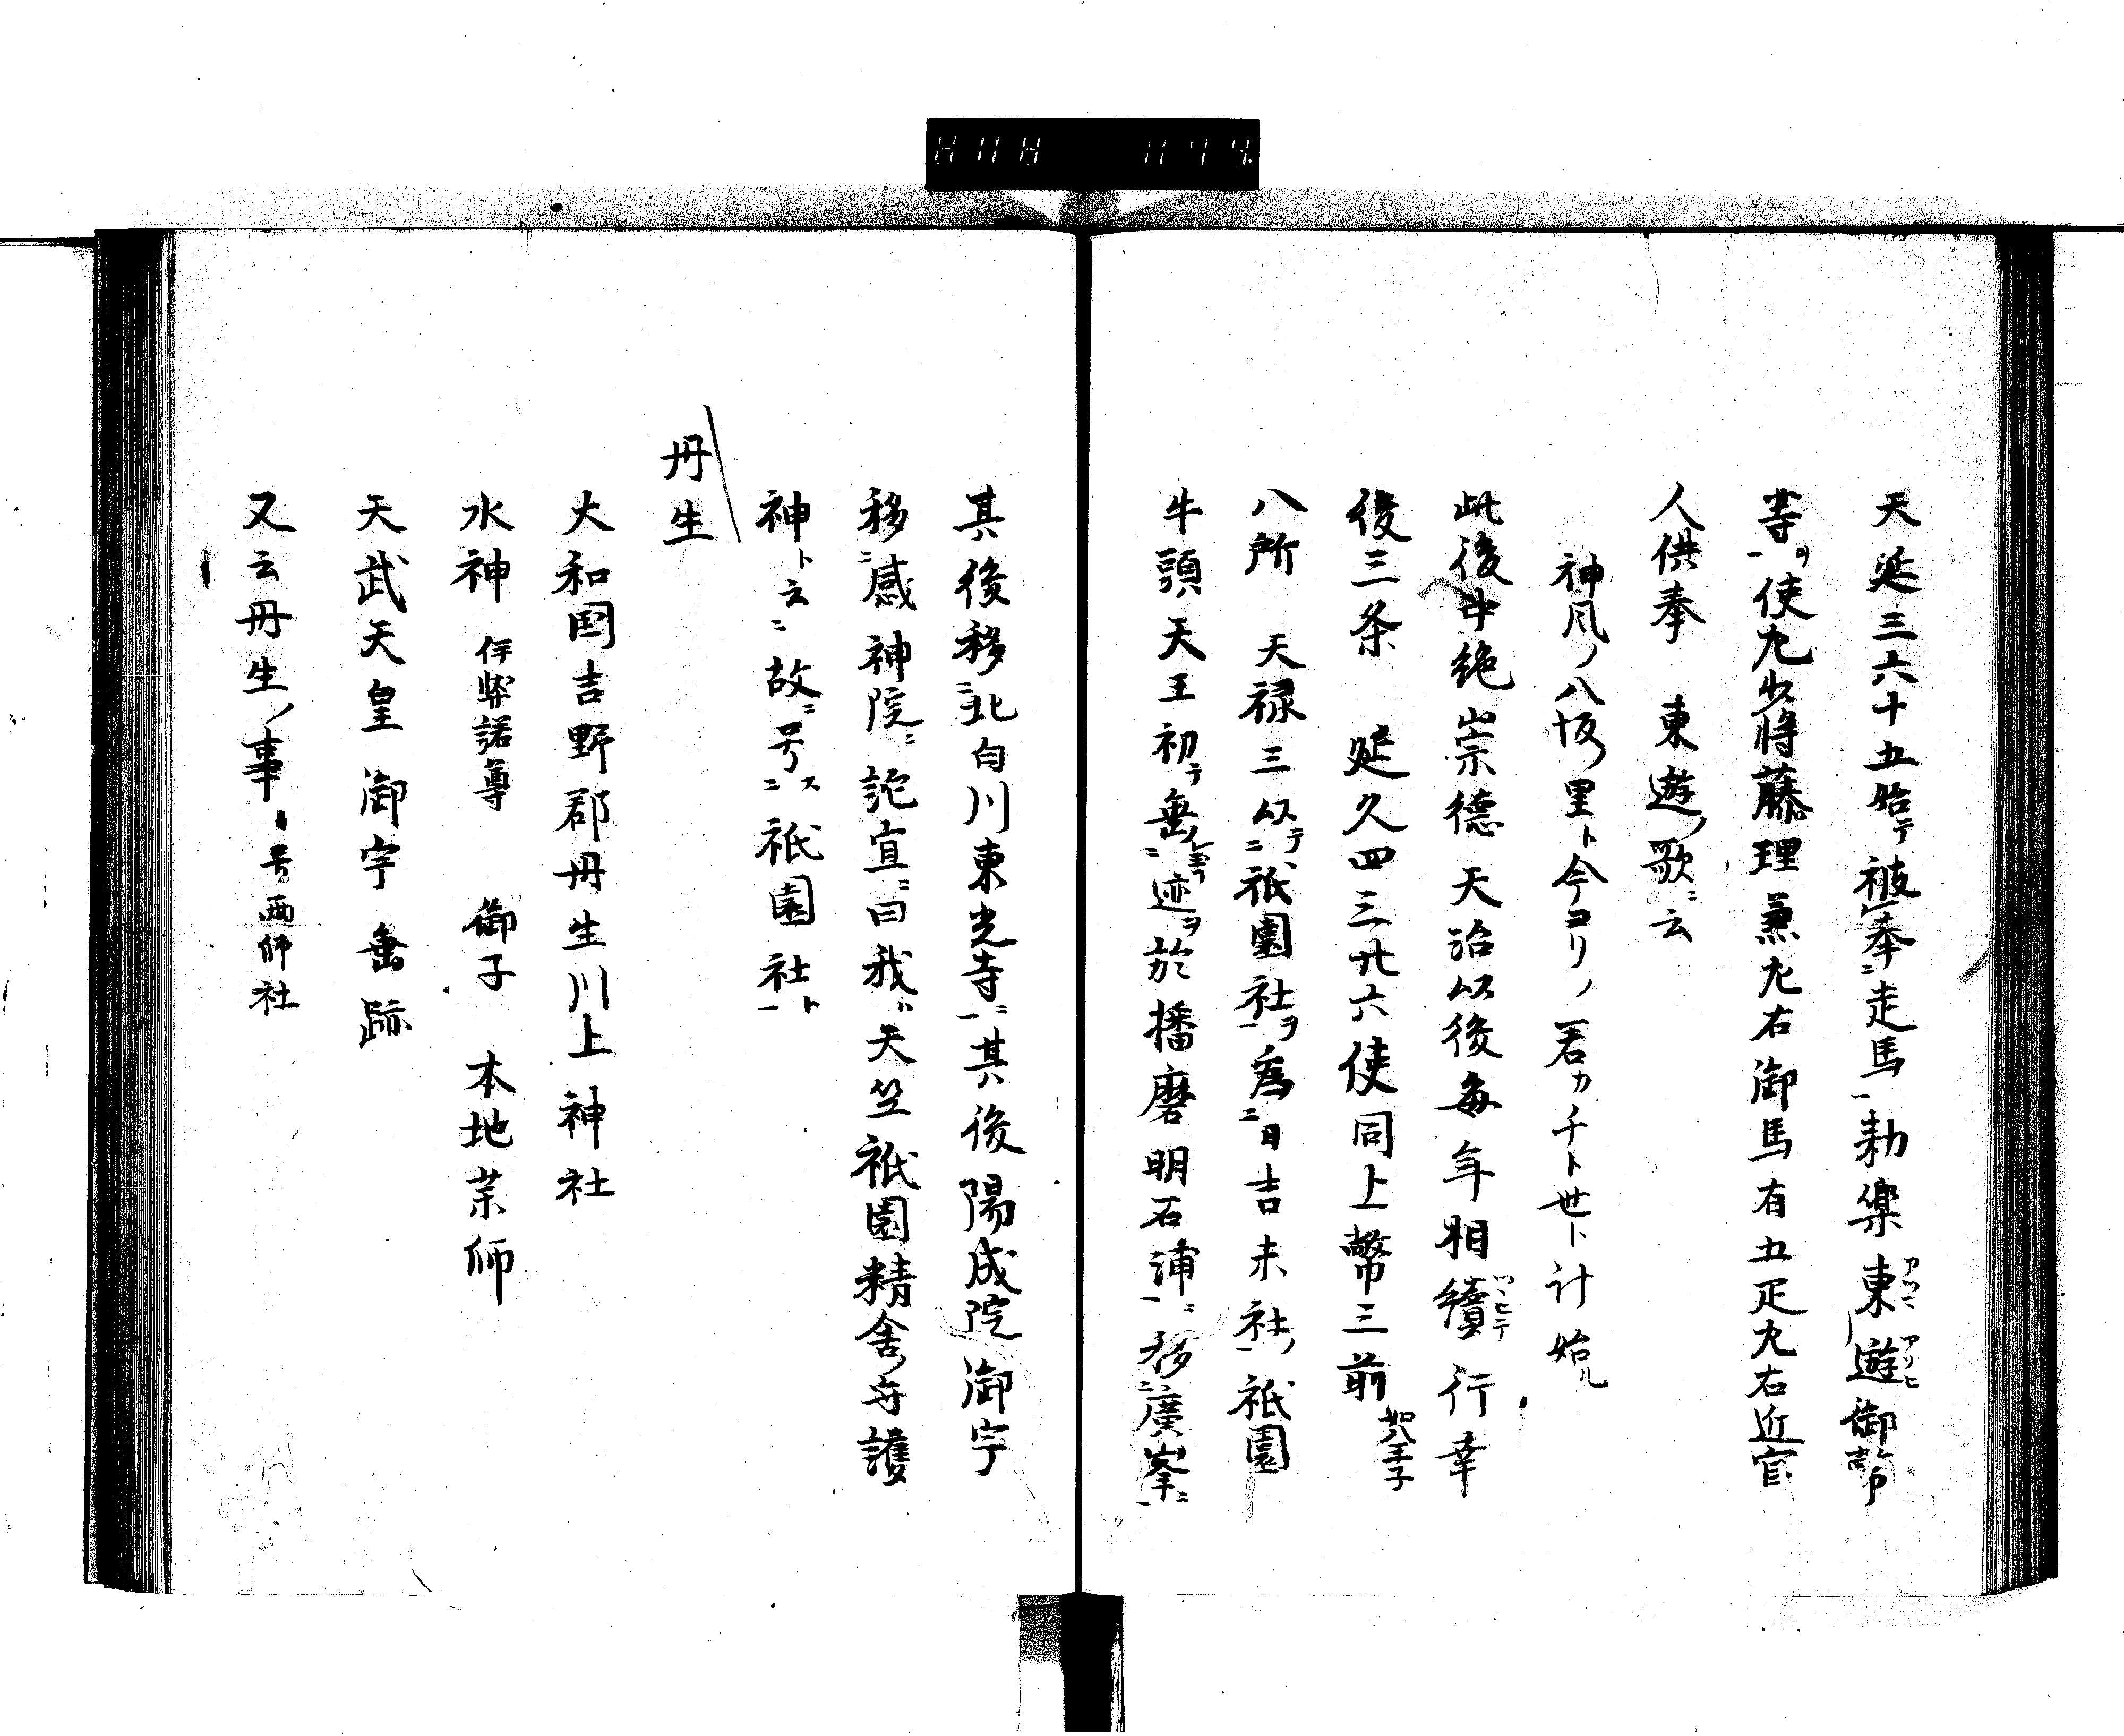 天延三六十五始テ被レ奉二走馬一勅楽東遊御幣
等ヲ一使左少将藤理兼左右御馬有五疋左右近官
人供奉　東遊ノ歌ニ云
神風ノ八坂ノ里ト今ヨリノ君カチト世ト计始ル
此後中絶崇徳天治以後毎年相續行幸
後三条　延久四三廿六使同上幣三前如八王子
八所　天禄三以テ二祇園社ヲ一為二日吉末社ノ一祇園
牛頭天王初テ垂二迹ヲ於播磨明石浦ニ一移二廣峯ニ一
其後移二北白川東光寺ニ一其後陽成院御宇
移二感神院ニ託宣ニ曰我ハ天竺祇園精舎ノ守護
神ト云ニ故ニ号ス二祇園社ト一
丹生
大和国吉野郡丹生川上神社
水神　伊弉諾尊　御子　本地薬師
天武天皇御宇垂跡
又云丹生ノ事号西師社